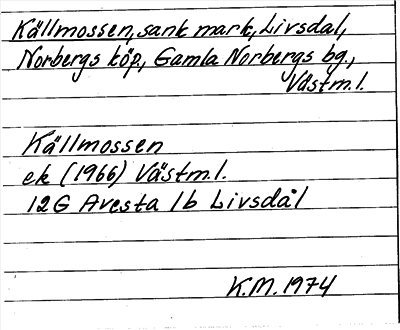 Källmossen, sank mark, Livsdal,
Norbergs köp, Gamla Norbergs bg.,
Västm.l.
Källmossen
ek (1966) Västm.l.
12G Avesta 1b Livsdal
K.M. 1974